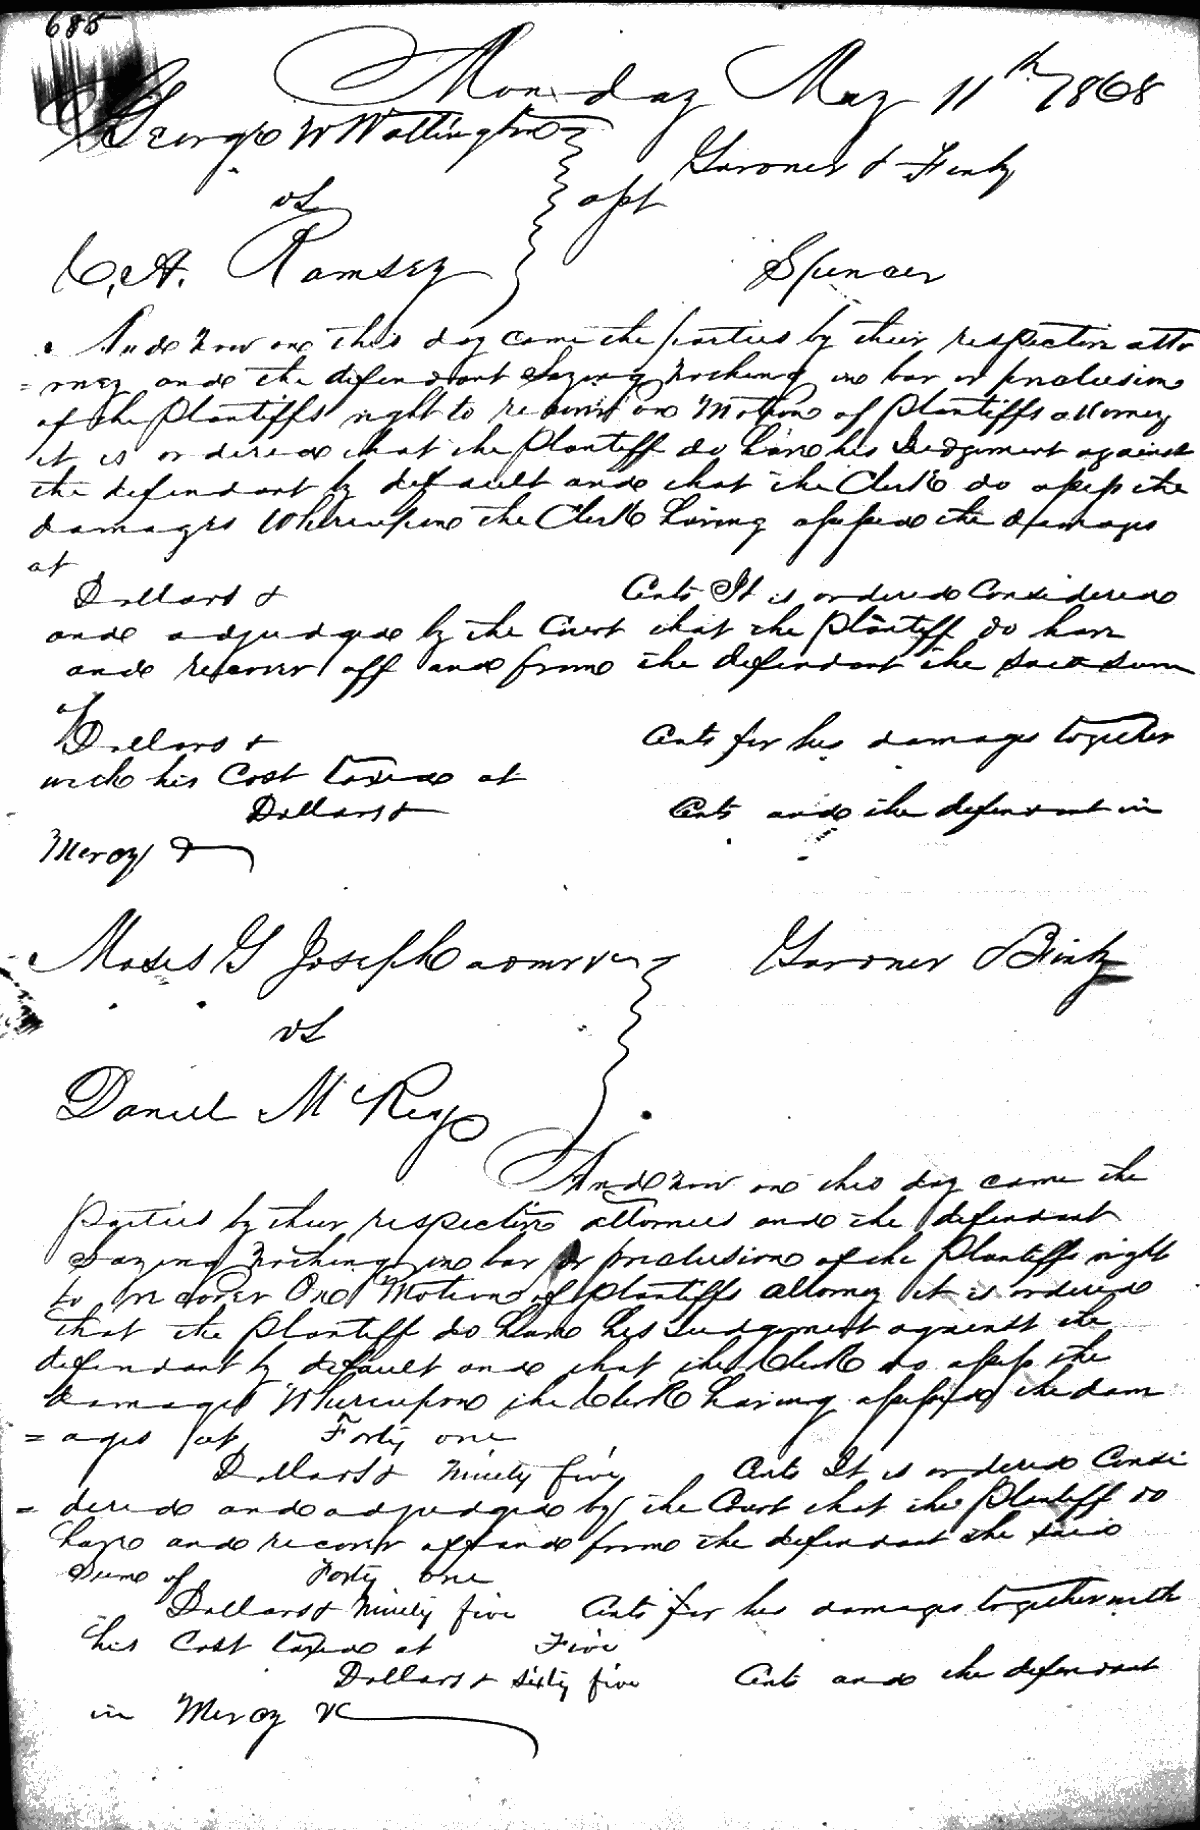 685
Monday May 11th 1868
George W Wallington
Gardner &
vs
apt
C. A. Ramsey
Spencer
And now on this day came the parties by their respective atto
=rney and the defendant Saying nothing in bar or preclusion
of the Plantiffs right to recover on Motion of Plantiffs attorney
it is ordered that the Plantiff do have his Judgement against
the defendant by default and that the Clerk do assess the
damages Whereupon the Clerk having assessed the damages
at
Dollars &
Cents It is ordered Considered
and adjudged by the Court that the Plantiff do have
and recover off and from the defendant the said sum
of
Dollars &
Cents for his damages together
with his Cost taxed at
Dollars &
Cents and the defendant in
Mercy &
Moses G Joseph
Gardner
vs
Daniel
And now on this day came the
Parties by their respective attornies and the defendant
Saying nothing in bar or preclusion of the Plantiffs right
to recover On Motion of Plantiffs attorney it is ordered
that the Plantiff do have his Judgement against the
defendant by default and that the Clerk do assess the
damages Whereupon the Clerk having assessed the dam
=ages at Forty one
Dollars & Ninety five Cents It is ordered Consi
=dered and adjudged by the Court that the Plantiff do
have and recover off and from the defendant the said
Sum of Forty one
Dollars & Ninety five Cents for his damages together with
his Cost taxed at Five
Dollars & sixty five Cents and the defendant
in Mercy &c